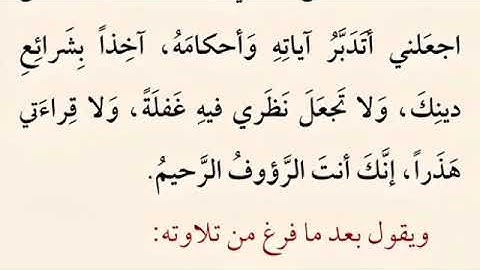 اجعَلني أتَدَبَّرُ آياتِهِ وَأحكامَهُ، آخِذاً بِشَرائِعِ
دينِكَ، وَلا تَجعَلَ نَظَري فيهِ غَفلَةً، وَلا قِراءَتي
هَذَراً، إنَّكَ أنتَ الرَّؤوفُ الرَّحيمُ.
ويقول بعد ما فرغ من تلاوته: